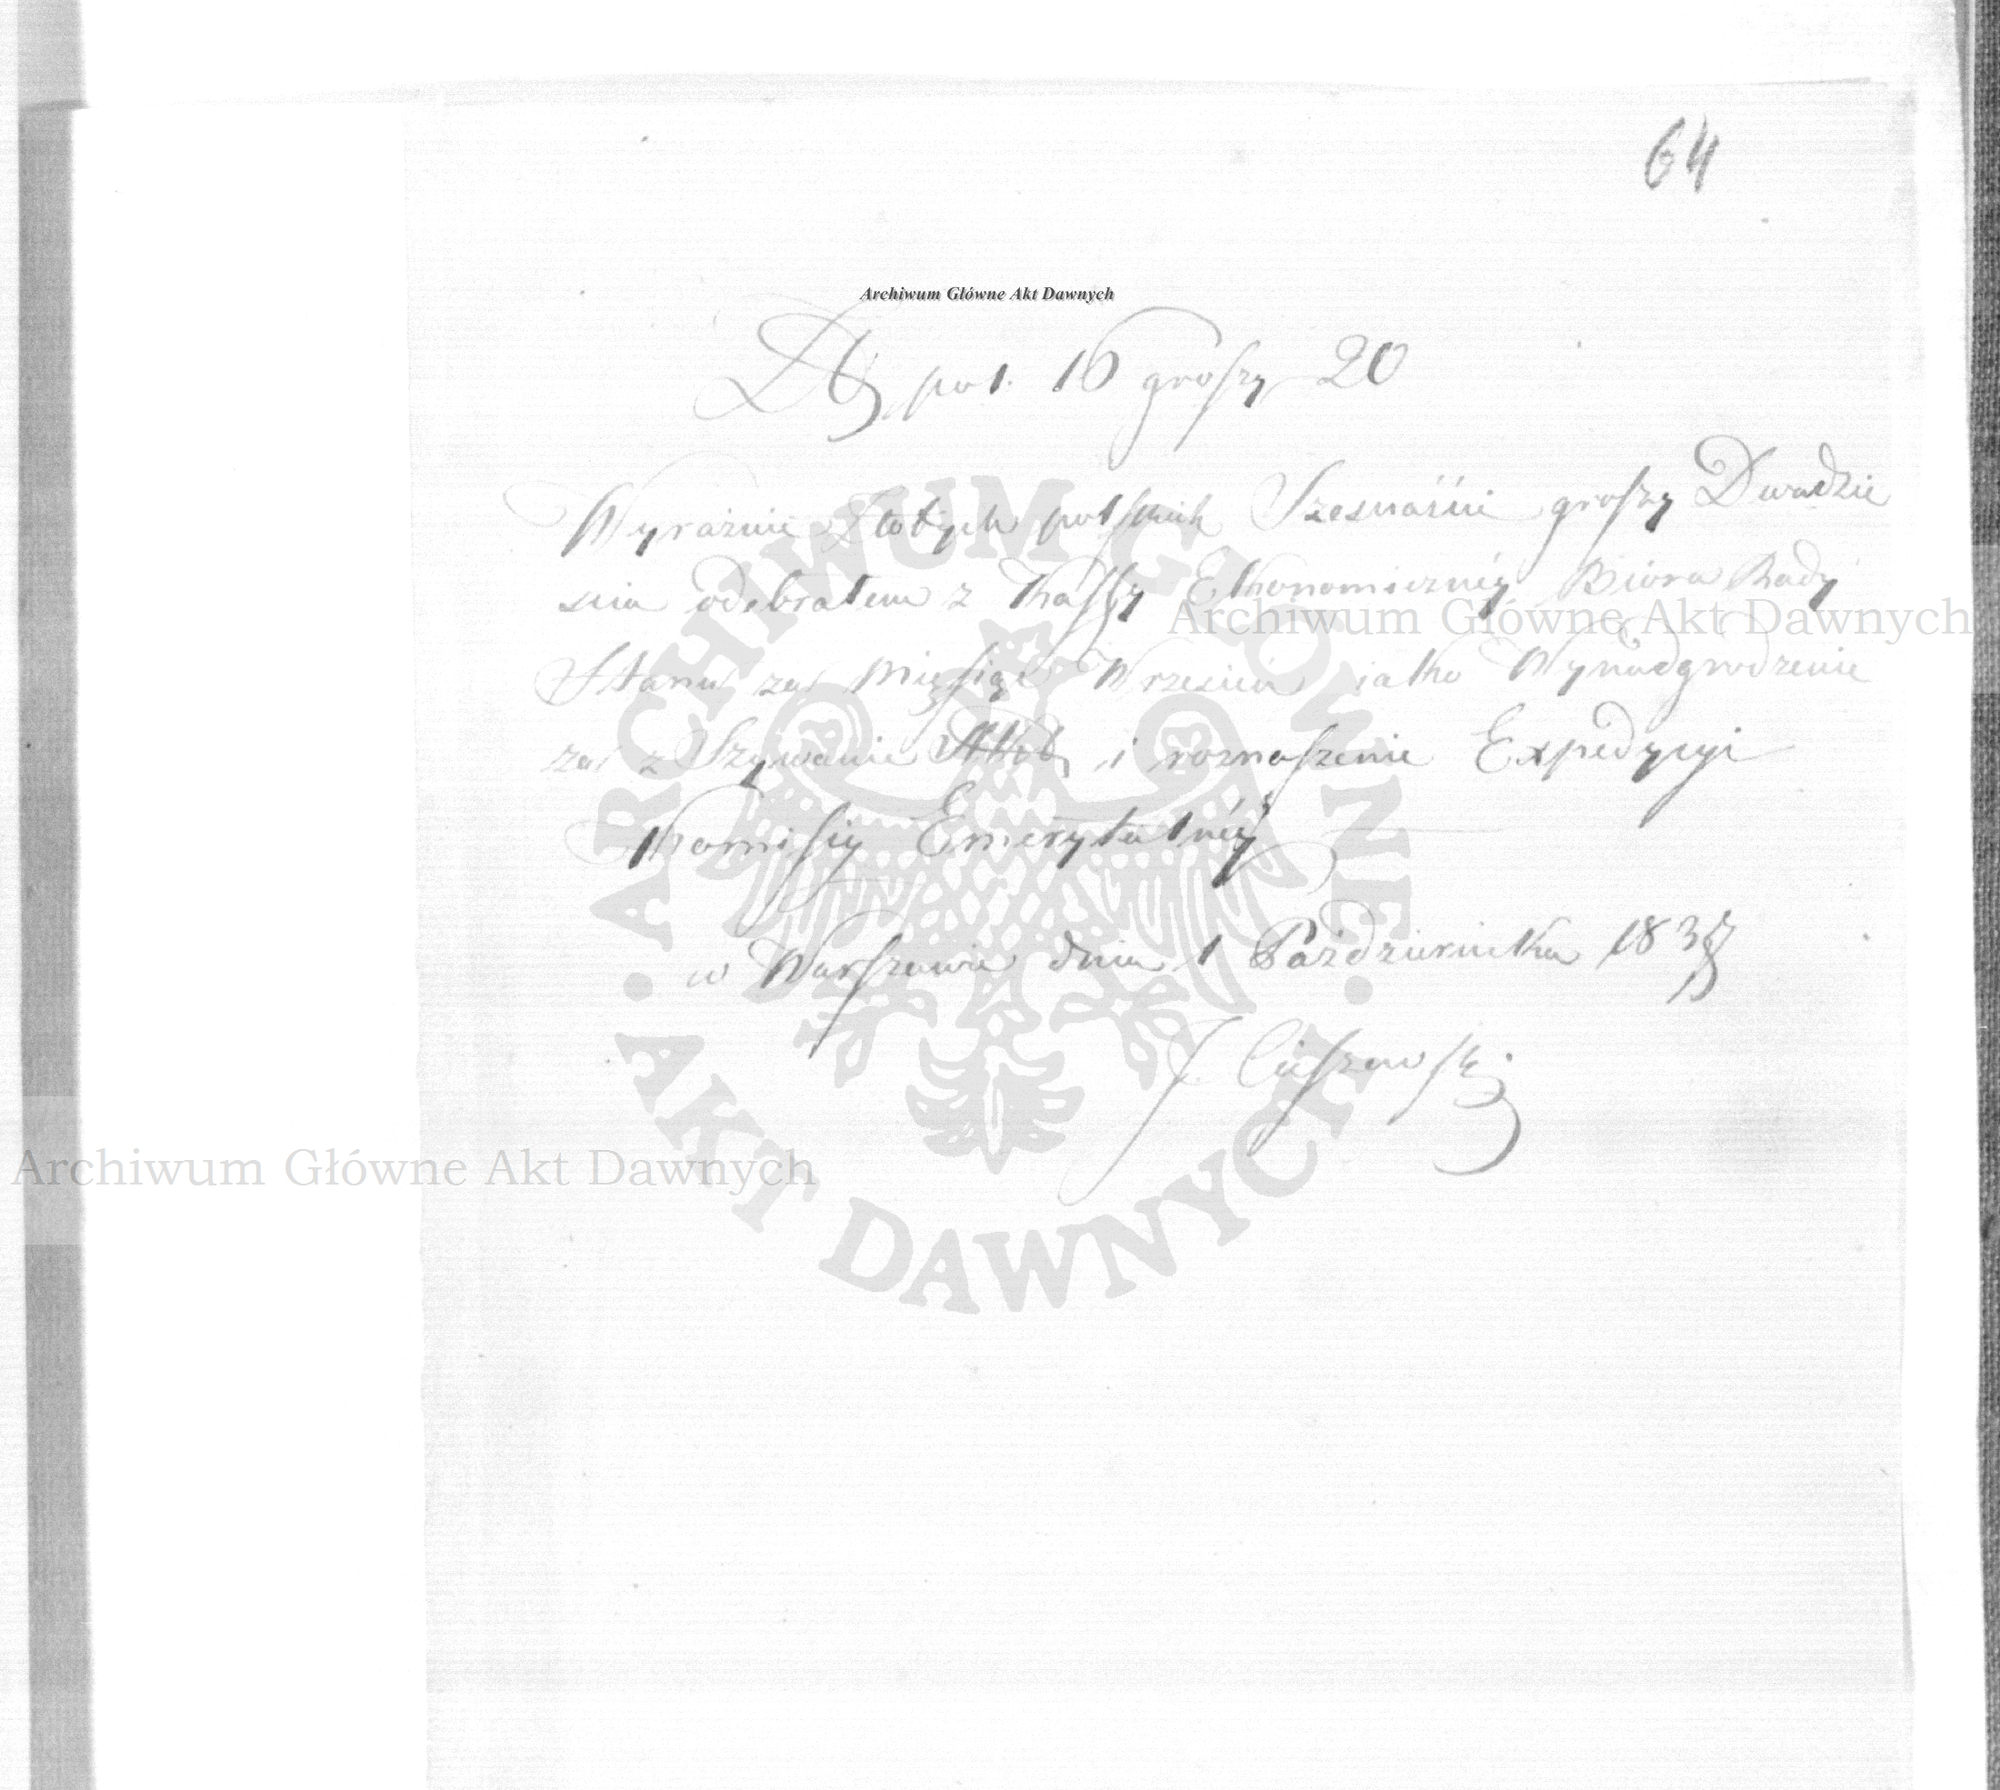 64
Archiwum Główne Akt Dawnych
Zł pol. 16 groszy 20
Wyraźnie Złotych polskich Szesnaście groszy Dwadzie
scia odebrałem z Kassy Ekonomicznéy Biora Rady
Archiwum Główne Akt Dawnych
Stanu za Miesiąc Wrzesień iako Wynadgrodzenie
za z Szywanie Akt i roznoszenie Expedycyi
Kommissyi Emerytalnéy
w Warszawie dnia 1 Października 183
J. Ciszewski
Archiwum Główne Akt Dawnych
ARCHIWUM GŁÓWNE
AKT DAWNYCH